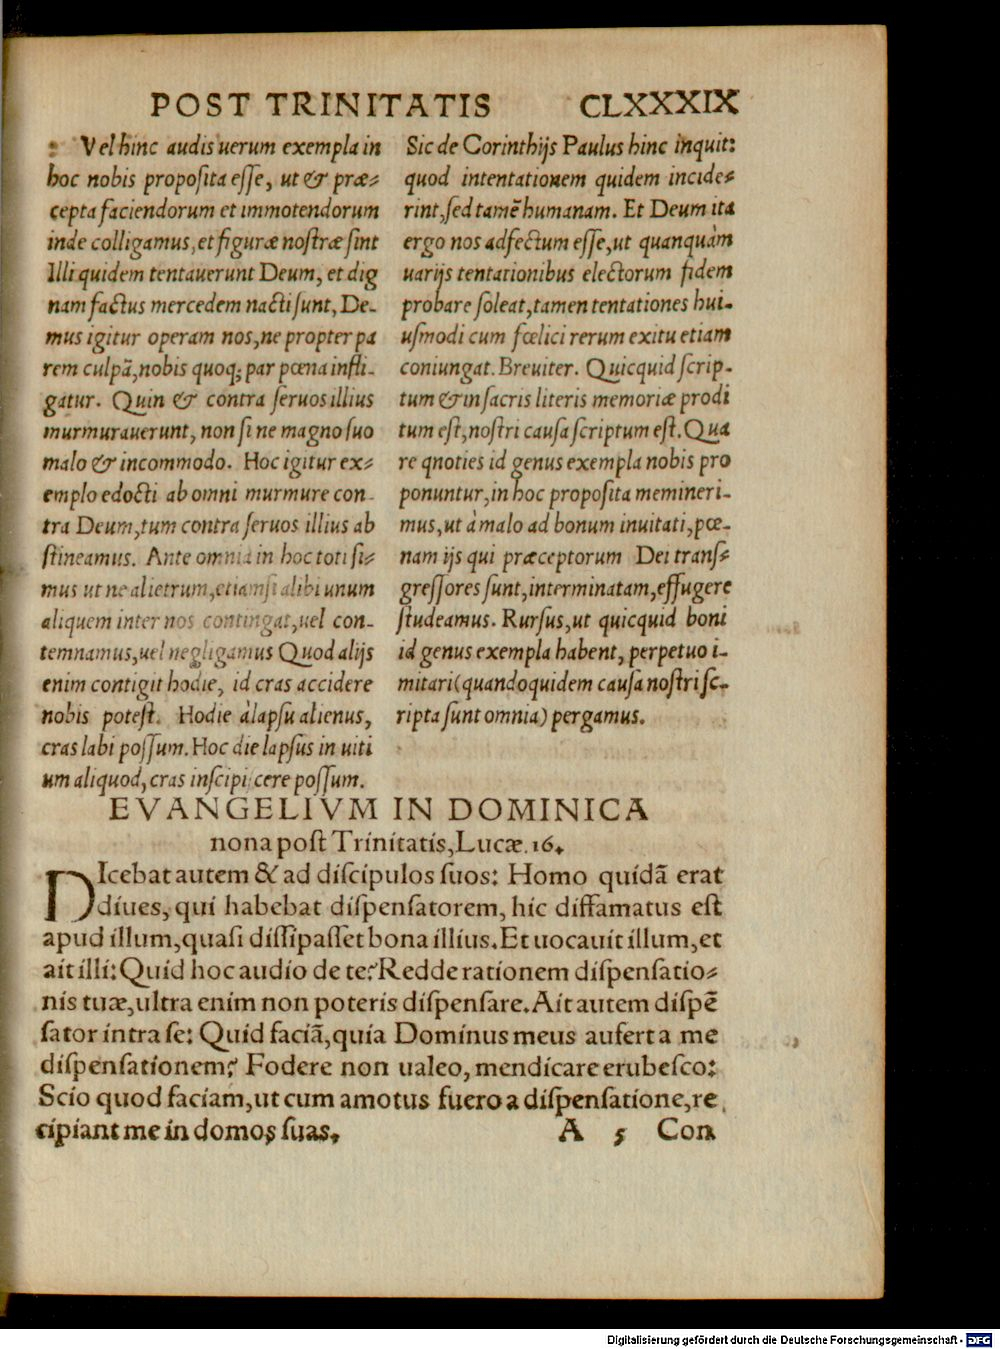 POST TRINITATIS CLXXXIX
: Vel hinc audis uerum exempla in
hoc nobis proposita esse, ut & præ-
cepta faciendorum et immotendorum
inde colligamus, et figuræ nostræ sint
Illi quidem tentauerunt Deum, et dig
nam factus mercedem nacti sunt, De-
mus igitur operam nos, ne propter pa
rem culpā, nobis quoq; par pœna infli-
gatur. Quin & contra seruos illius
murmurauerunt, non si ne magno suo
malo & incommodo. Hoc igitur ex-
emplo edocti ab omni murmure con-
tra Deum, tum contra seruos illius ab
stineamus. Ante omnia in hoc toti si-
mus ut ne alietrum, etiamsi alibi unum
aliquem inter nos contingat, uel con-
temnamus, uel negligamus Quod alijs
enim contigit hodie, id cras accidere
nobis potest. Hodie à lapsu alienus,
cras labi possum. Hoc die lapsus in uiti
um aliquod, cras inscipi cere possum.
Sic de Corinthijs Paulus hinc inquit:
quod intentationem quidem incide-
rint, sed tamē humanam. Et Deum ita
ergo nos adfectum esse, ut quanquàm
uarijs tentationibus electorum fidem
probare soleat, tamen tentationes hui-
usmodi cum fœlici rerum exitu etiam
coniungat. Breuiter. Quicquid scrip-
tum & in sacris literis memoriæ prodi
tum est, nostri causa scriptum est. Qua
re qnoties id genus exempla nobis pro
ponuntur, in hoc proposita memineri-
mus, ut à malo ad bonum inuitati, pœ-
nam ijs qui præceptorum Dei trans-
gressores sunt, interminatam, effugere
studeamus. Rursus, ut quicquid boni
id genus exempla habent, perpetuo i-
mitari (quandoquidem causa nostri sc-
ripta sunt omnia) pergamus.
EVANGELIVM IN DOMINICA
nona post Trinitatis, Lucæ. 16.
DIcebat autem & ad discipulos suos: Homo quidā erat
diues, qui habebat dispensatorem, hic diffamatus est
apud illum, quasi dissipasset bona illius. Et uocauit illum, et
ait illi: Quid hoc audio de te? Redde rationem dispensatio-
nis tuæ, ultra enim non poteris dispensare. Ait autem dispē
sator intra se: Quid faciā, quia Dominus meus aufert a me
dispensationem? Fodere non ualeo, mendicare erubesco:
Scio quod faciam, ut cum amotus fuero a dispensatione, re
cipiant me in domos suas,
A 5 Con
Digitalisierung gefördert durch die Deutsche Forschungsgemeinschaft - DFG